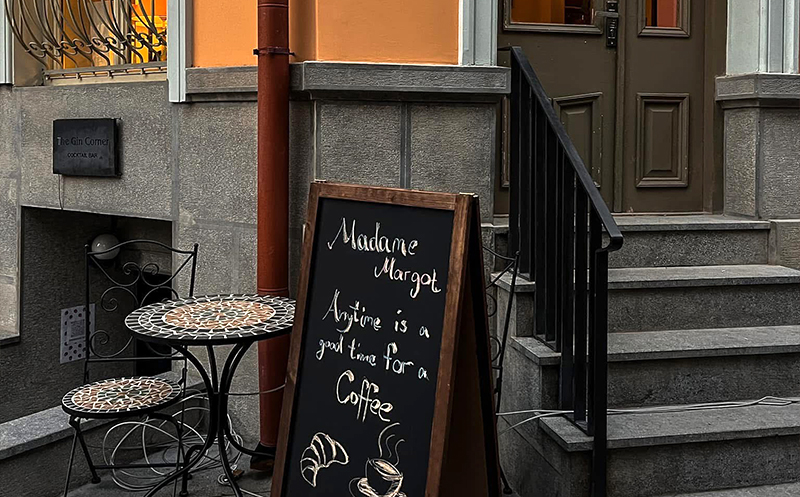 The Gin Corner
COCKTAIL BAR
Madame
Margot
Anytime is a
good time for a
Coffee